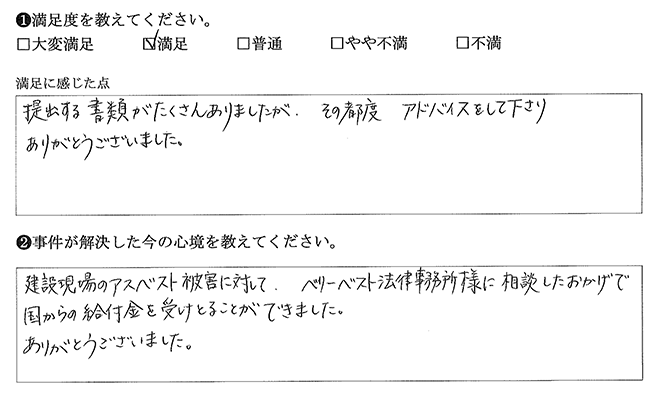 ❶満足度を教えてください。
□大変満足 ☑満足 □普通 □やや不満 □不満
満足に感じた点
提出する書類がたくさんありましたが、その都度 アドバイスをして下さり
ありがとうございました。
❷事件が解決した今の心境を教えてください。
建設現場のアスベスト被害に対して、ベリーベスト法律事務所様に相談したおかげで
国からの給付金を受けとることができました。
ありがとうございました。